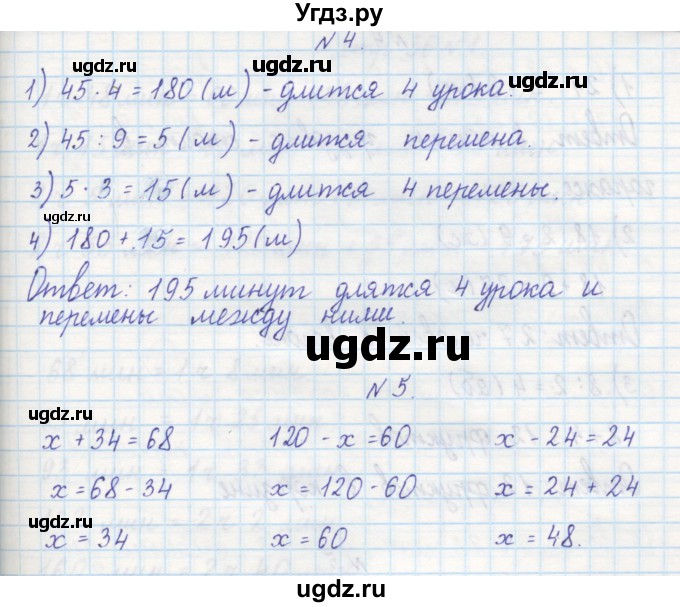 Угдз.ру
N 4.
1) 45 · 4 = 180 (м) - длится 4 урока.
2) 45 : 9 = 5 (м) - длится перемена.
3) 5 · 3 = 15 (м) - длится 4 перемены.
4) 180 + 15 = 195 (м)
Ответ: 195 минут длятся 4 урока и
перемены между ними.
N 5.
x + 34 = 68 120 - x = 60 x - 24 = 24
x = 68 - 34 x = 120 - 60 x = 24 + 24
x = 34 x = 60 x = 48.
ugdz.ru
ugdz.ru
ugdz.ru
ugdz.ru
ugdz.ru
ugdz.ru
ugdz.ru
ugdz.ru
ugdz.ru